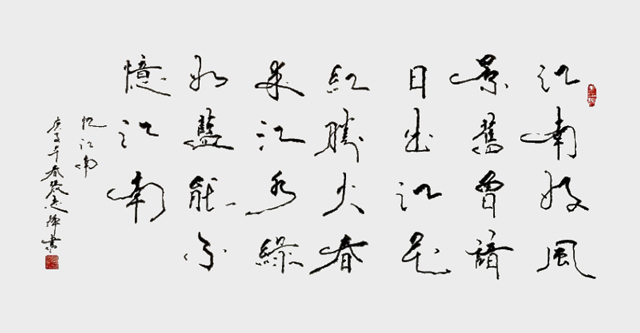 江南好風
景舊曾諳
日出江花
紅勝火春
來江水綠
如藍能不
憶江南
忆江南
庚子年春 書